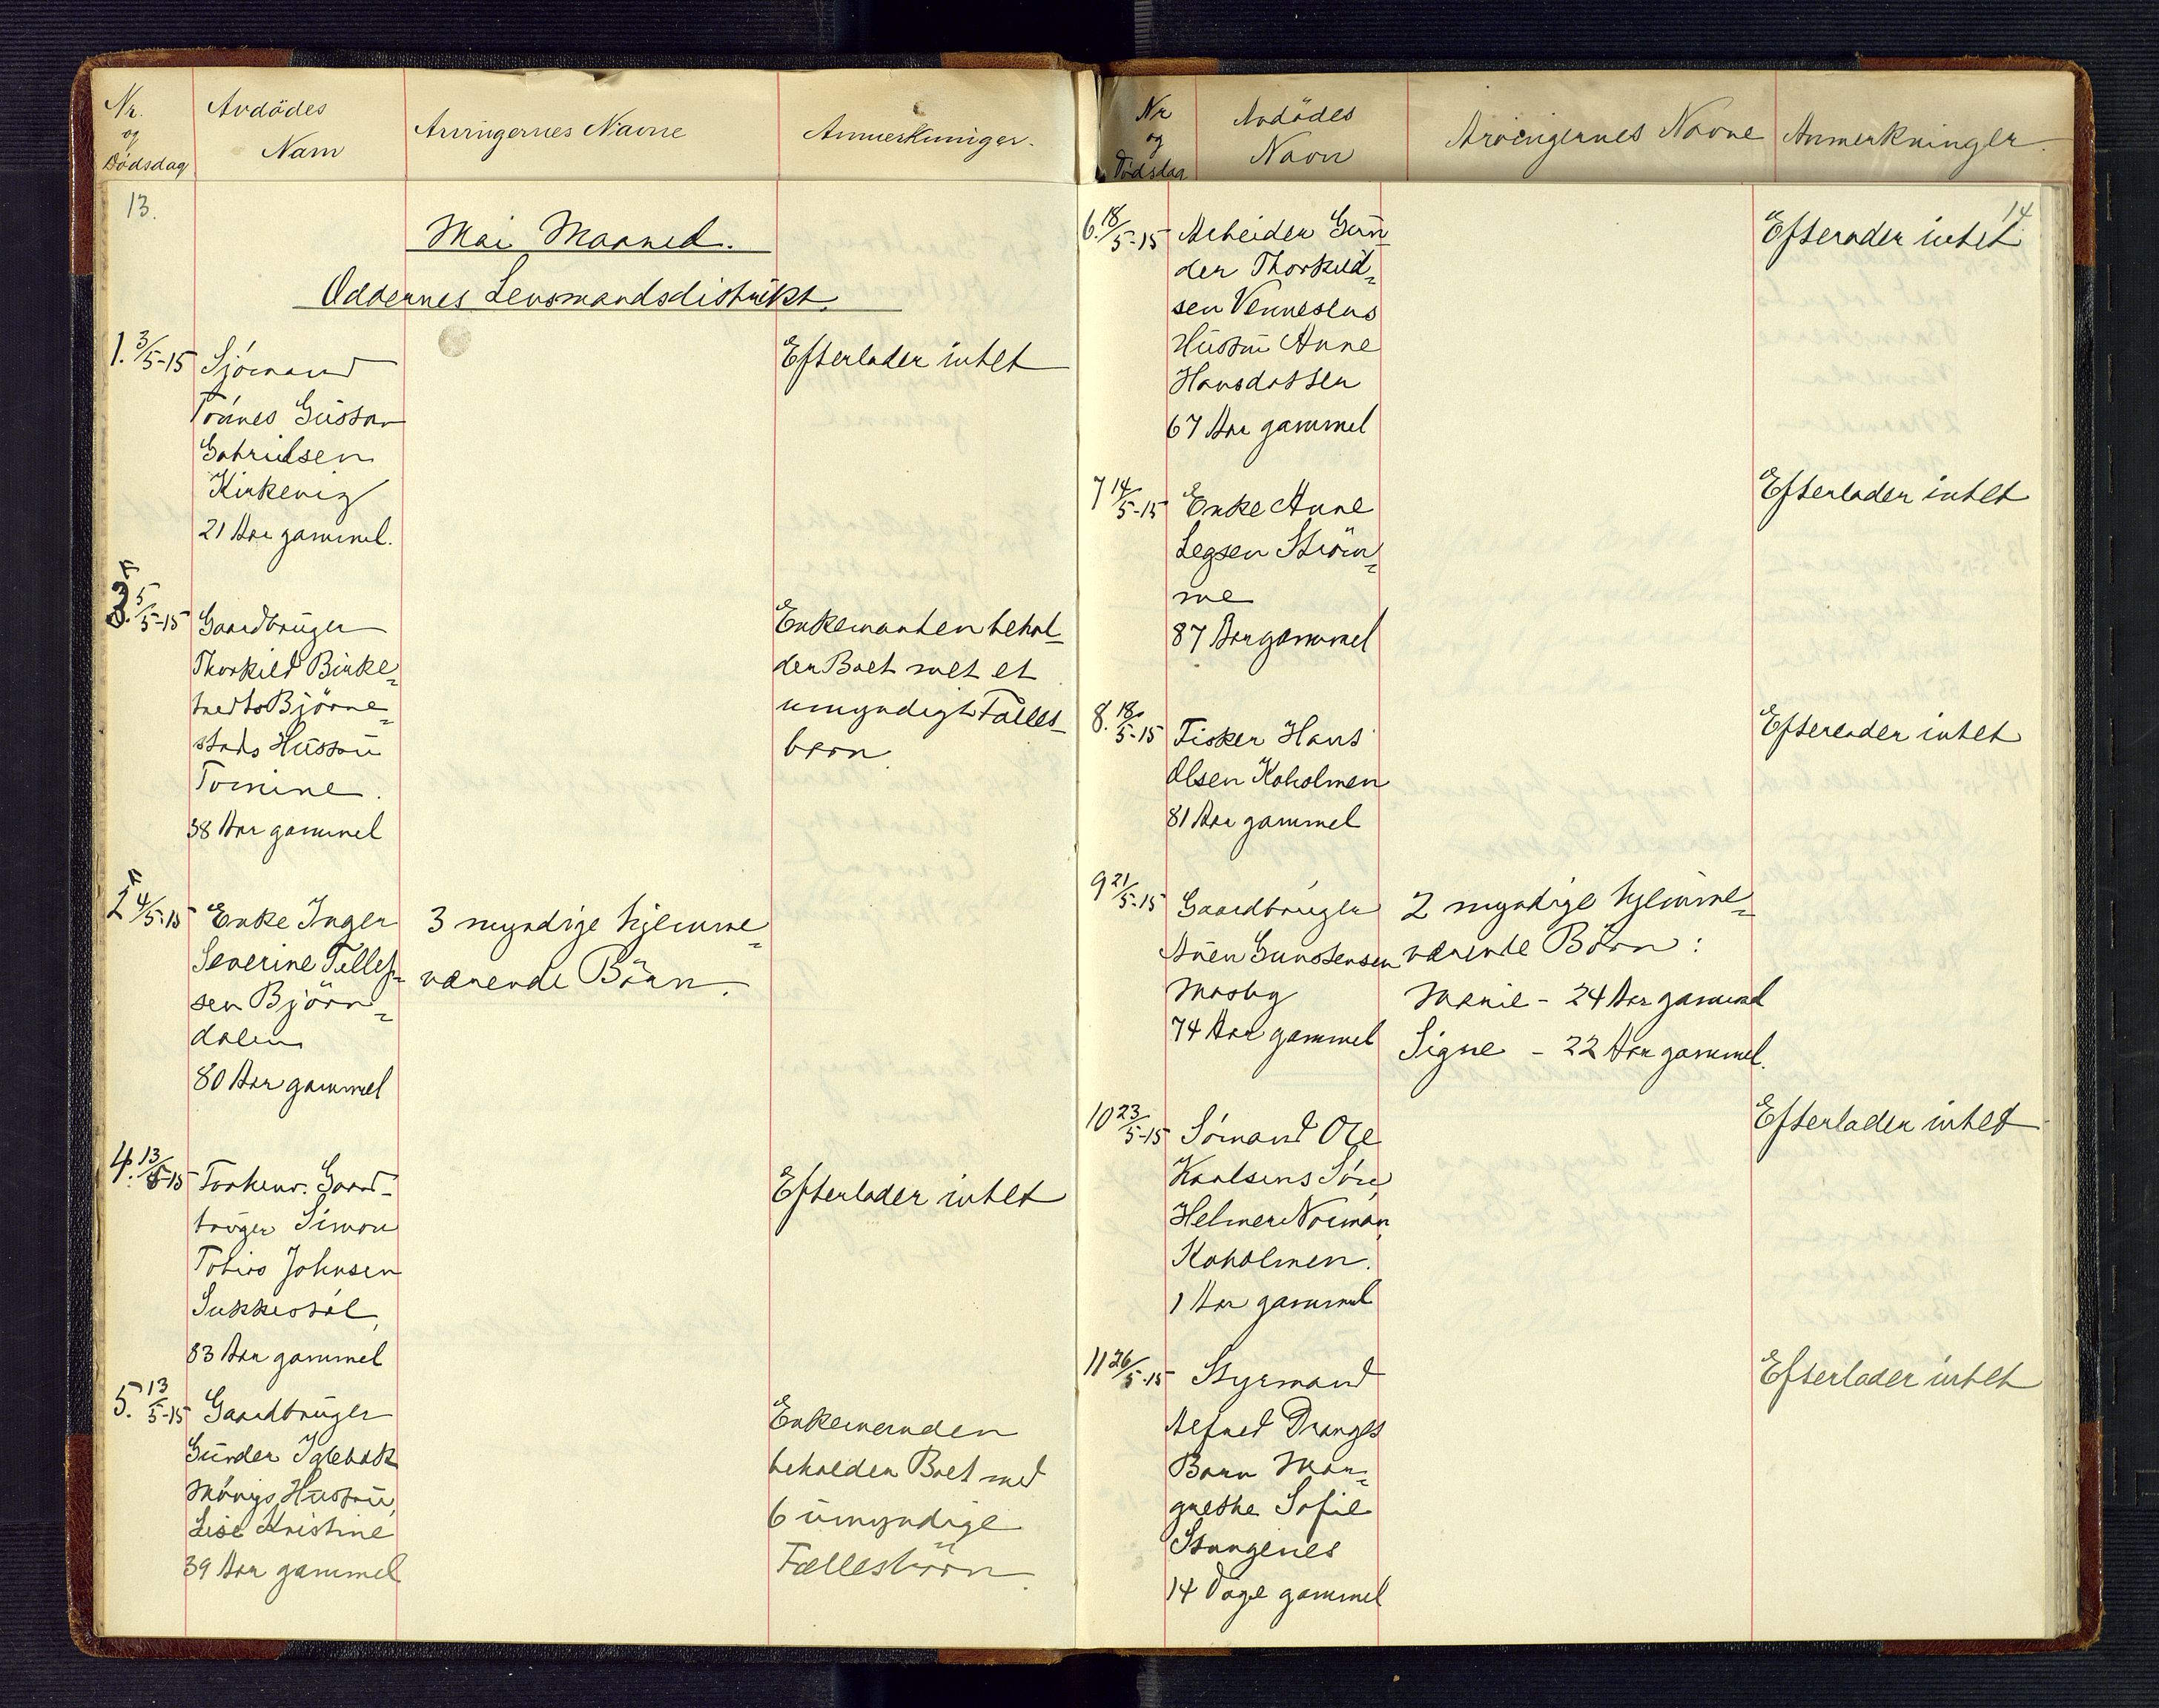 Nr.
og
Dödsdag
Avdödes
Navn
Arvingernes Navne
Anmerkninger.
13.
Mai Maaned.
Oddernes Lensmandsdistrikt.
1. 3/5-15
Sjömand
Gustav
Gabrielsen
Kirkevig
21 Aar gammel.
Efterlader intet
3. 5/5-15
Gaardbruger
Thorkild Birke=
Björne=
stads Hustru
Tomine.
38 Aar gammel
Enkemanden behol=
der Boet med et
umyndigt Fælles=
barn.
2 4/5-15
Enke Inger
Severine Tellef=
sen Björn=
dalen
80 Aar gammel
3 myndige hjemme=
værende Börn.
4. 13/5-15
Forhenv. Gaard=
bruger Simon
Tobias Johnsen
Sukkestøl,
83 Aar gammel
Efterlader intet
5. 13/5-15
Gaardbruger
Gunder Iglebæk
Hustru,
Lise Kristine
39 Aar gammel
Enkemanden
beholder Boet med
6 umyndige
Fællesbörn.
Nr
og
Dödsdag
Avdödes
Navn
Arvingernes Navne
Anmerkninger.
14
6. 18/5-15
Arbeider Gun
der Thorkild=
sen Venneslas
Hustru Anne
Hansdatter
67 Aar gammel
Efterlader intet
7 14/5-15
Enke Anne
Ström=
me
87 Aar gammel
Efterlader intet
8. 18/5-15
Fisker Hans
Olsen Koholmen
81 Aar gammel
Efterlader intet
9 21/5-15
Gaardbruger
Aven Gunstensen
Mosby
74 Aar gammel
2 myndige hjemme=
værende Börn:
Marie - 24 Aar gammel
Signe - 22 Aar gammel.
10 23/5-15
Sömand Ole
Karlsens Sön,
Helmer Norman,
Koholmen.
1 Aar gammel
Efterlader intet
11 26/5-15
Styrmand
Alfred Dranges
Barn Mar=
grethe Sofie
Stangenes
14 Dage gammel
Efterlader intet